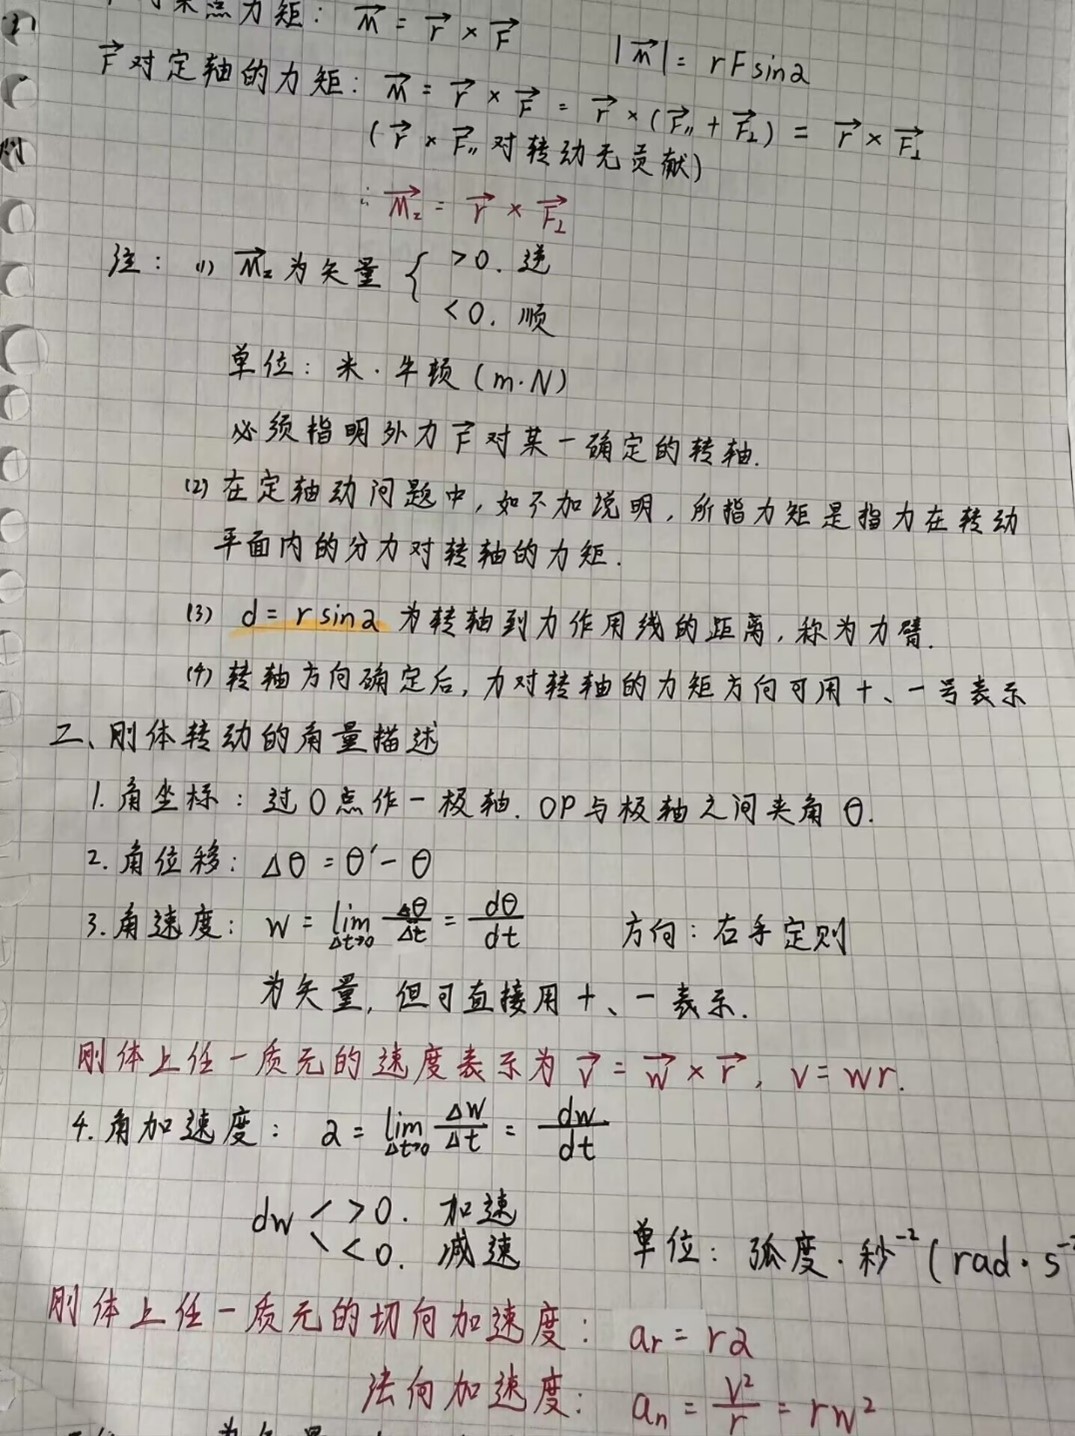 点力矩: M⃗ = r⃗ × F⃗    |M⃗| = rFsinα
F⃗对定轴的力矩: M⃗ = r⃗ × F⃗ = r⃗ × (F⃗∥ + F⃗⊥) = r⃗ × F⃗⊥
(r⃗ × F⃗∥ 对转动无贡献)
∴ M⃗z = r⃗ × F⃗⊥
注: (1) M⃗z为矢量 { >0. 逆
<0. 顺
单位: 米·牛顿 (m·N)
必须指明外力F⃗对某一确定的转轴.
(2) 在定轴动问题中, 如不加说明, 所指力矩是指力在转动
平面内的分力对转轴的力矩.
(3) d = r sinα 为转轴到力作用线的距离, 称为力臂.
(4) 转轴方向确定后, 力对转轴的力矩方向可用+、-号表示
二、刚体转动的角量描述
1. 角坐标: 过O点作一极轴. OP与极轴之间夹角θ.
2. 角位移: Δθ = θ′ - θ
3. 角速度: w = lim Δt→0 Δθ/Δt = dθ/dt    方向: 右手定则
为矢量, 但可直接用+、-表示.
刚体上任一质元的速度表示为 v⃗ = w⃗ × r⃗, v = wr.
4. 角加速度: α = lim Δt→0 Δw/Δt = dw/dt
dw < >0. 加速
<0. 减速    单位: 弧度·秒⁻² (rad·s⁻²
刚体上任一质元的切向加速度: ar = rα
法向加速度: an = v²/r = rw²